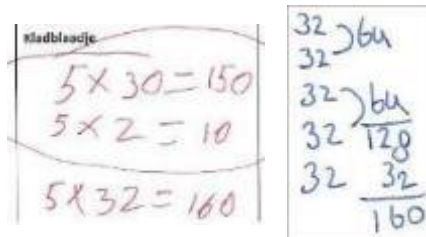 Kladblaadje
5 × 30 = 150
5 × 2 = 10
5 × 32 = 160
32
32 64
32
32 64
128
32 32
160